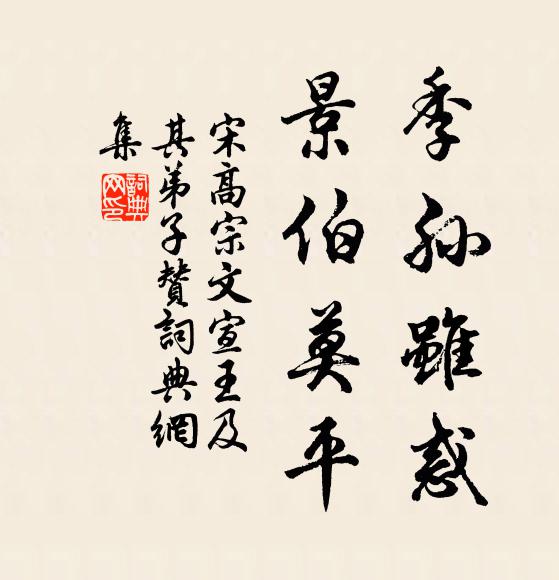 季孙雖惑
景伯莫平
宋高宗文宣王及
其弟子贊詞典網
集
詞典
网印